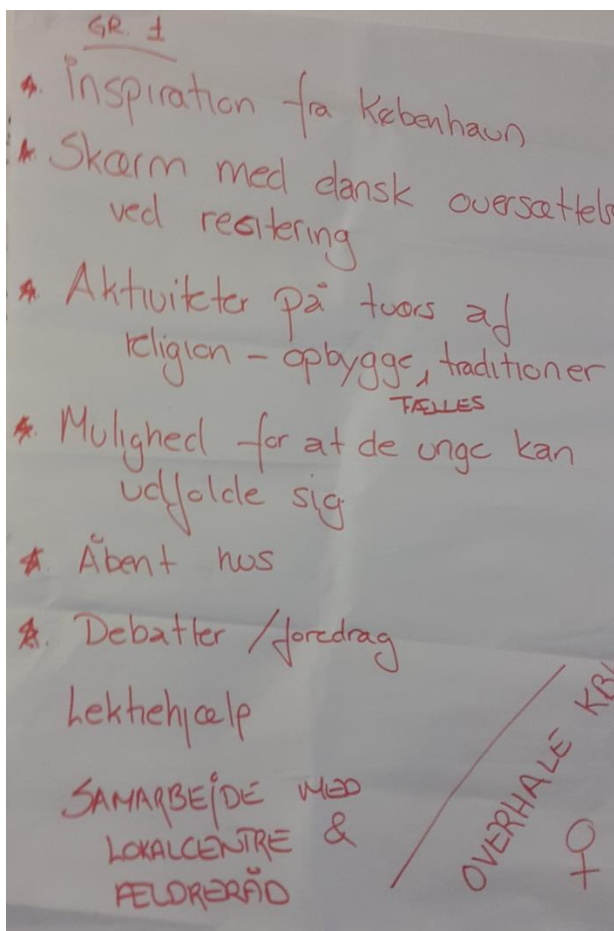 GR. 1
* Inspiration fra København
* Skærm med dansk oversættels
ved resitering
* Aktiviteter på tværs af
religion - opbygge, traditioner
FÆLLES
* Mulighed for at de unge kan
udfolde sig
* Åbent hus
* Debatter / foredrag
Lektiehjælp
SAMARBEJDE MED
LOKALCENTRE &
ÆLDRERÅD
OVERHALE KB
♀